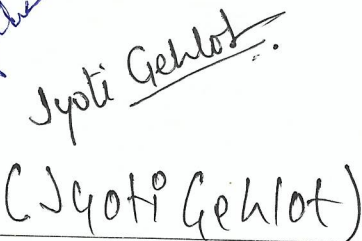 Jyoti Gehlot
(Jyoti Gehlot)